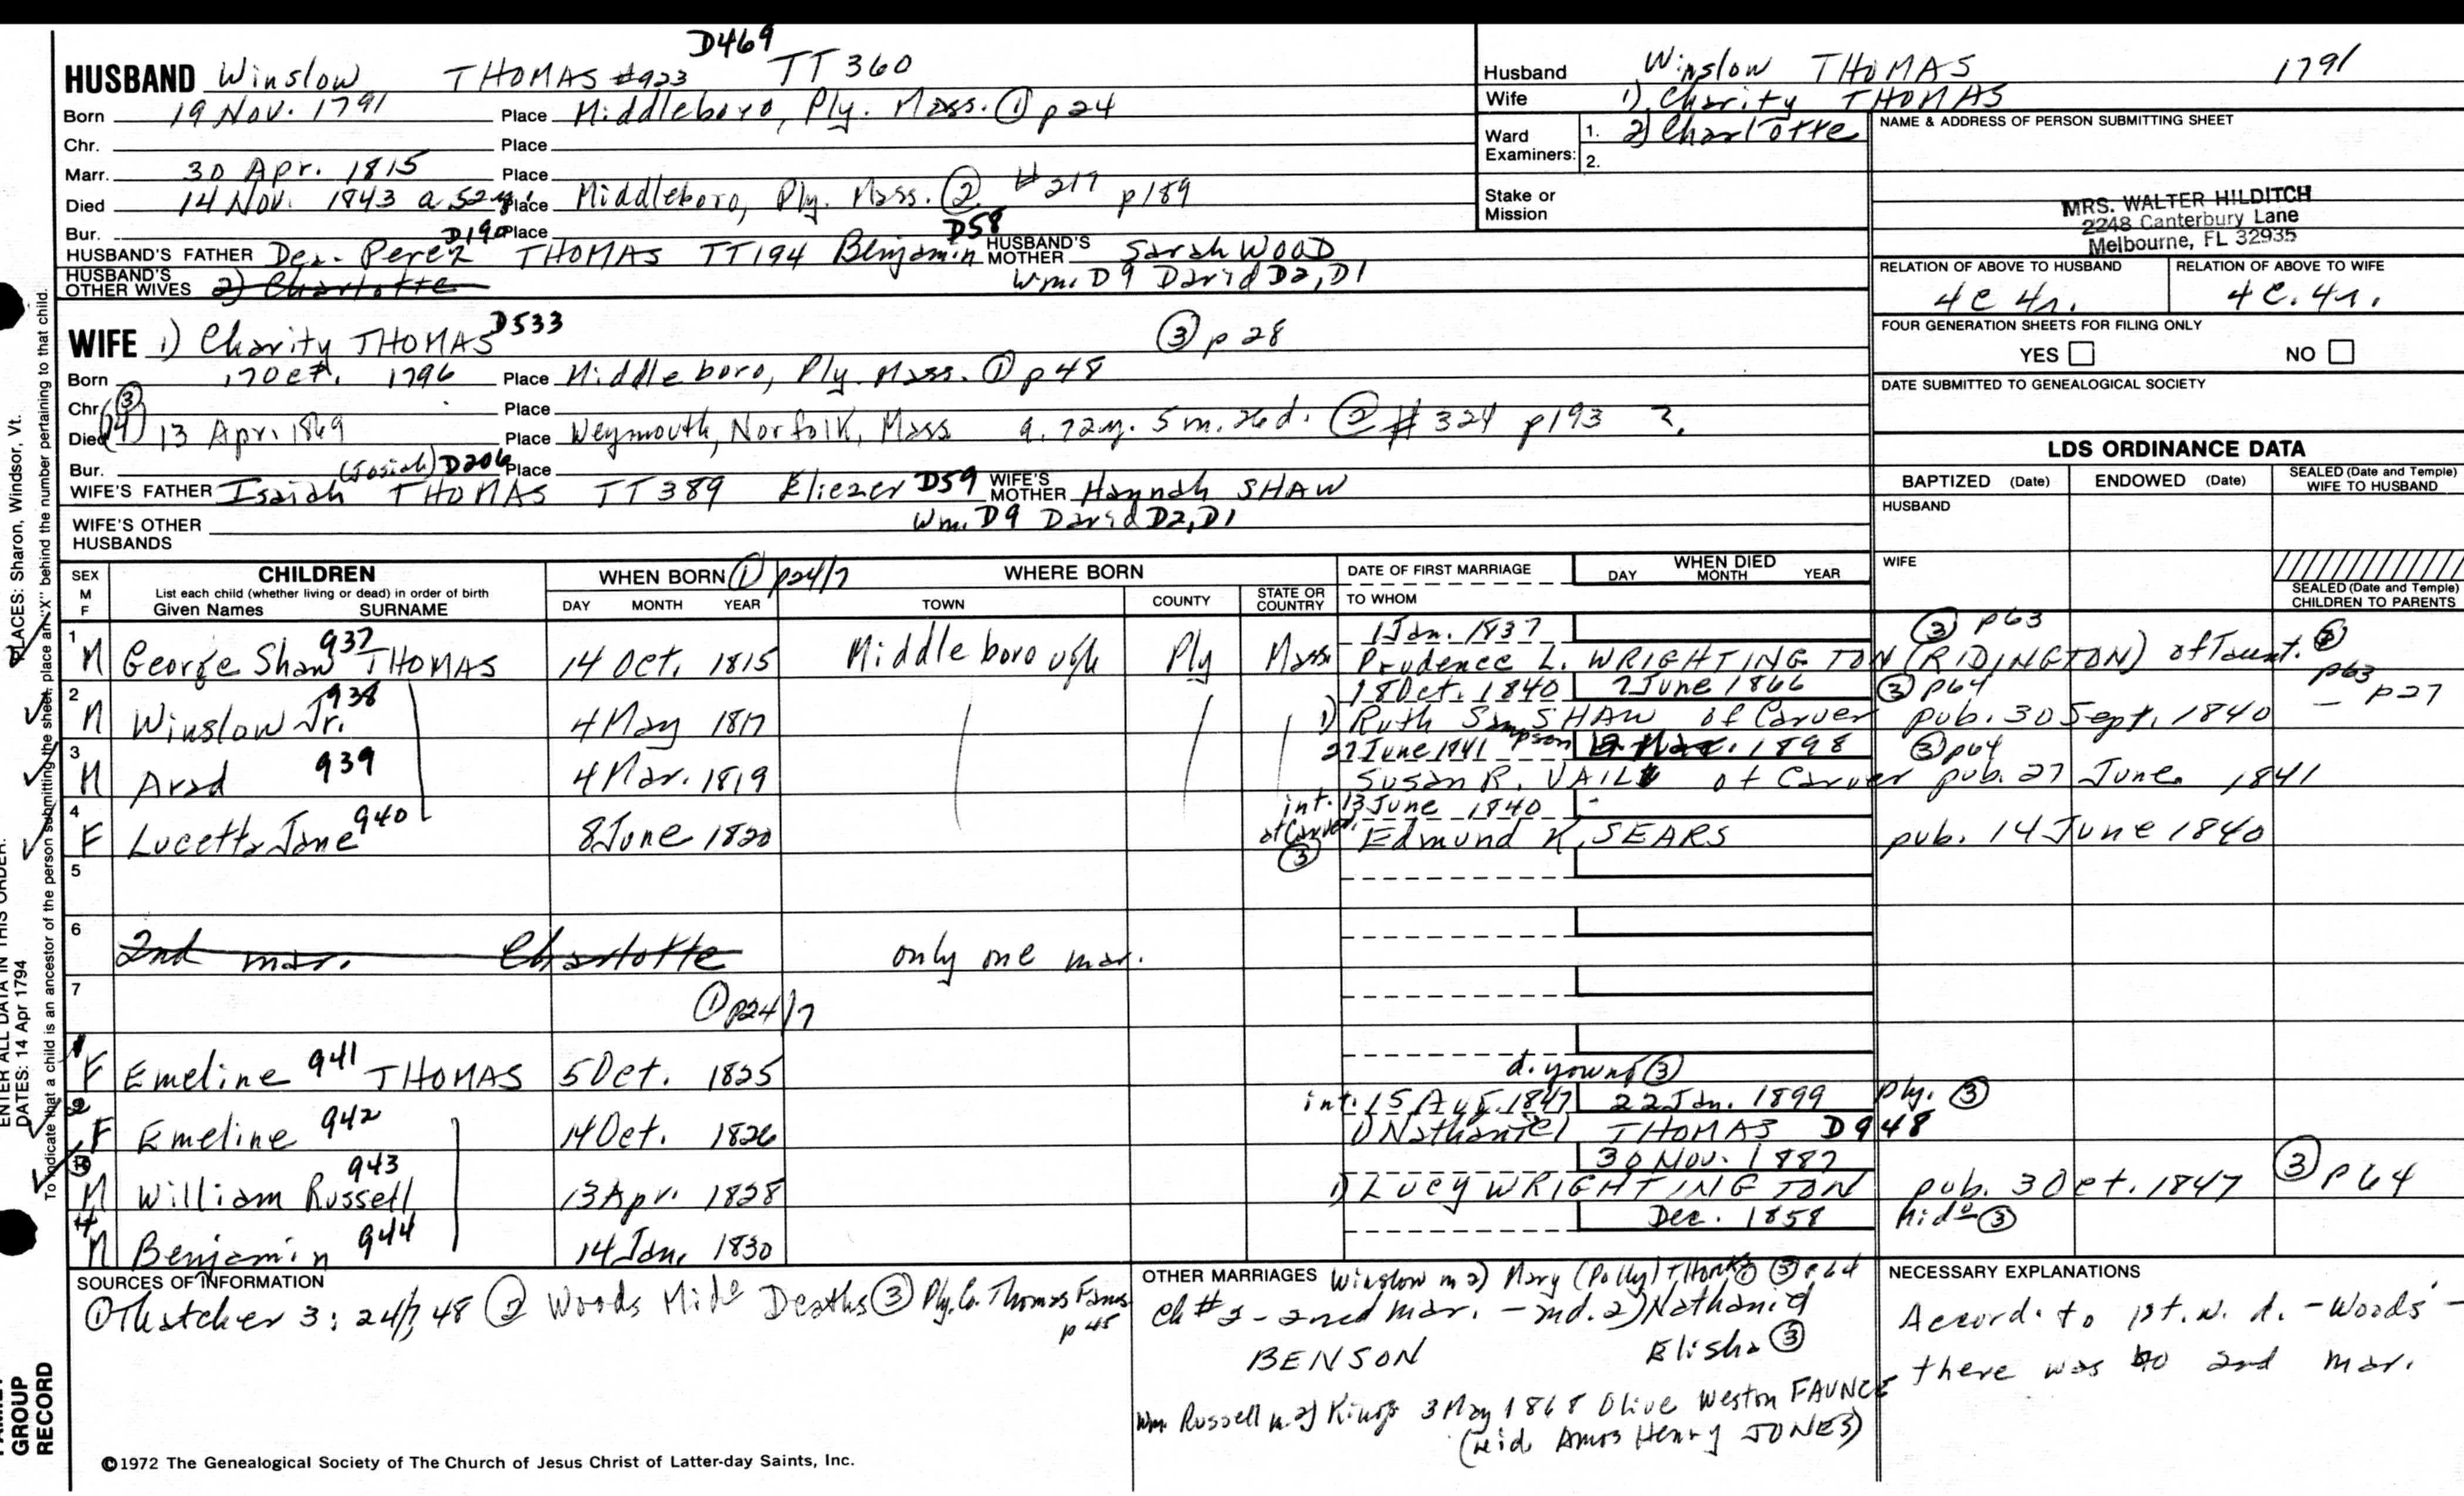 D469
HUSBAND Winslow THOMAS #923 TT 360
Born 19 Nov. 1791 Place Middleboro, Ply. Mass. ① p24
Chr. Place
Marr. 30 Apr. 1815 Place
Died 14 Nov. 1843 a 52 y. Place Middleboro, Ply. Mass. ② #217 p189
Bur. Place
D190 D58
HUSBAND'S FATHER Dea. Perez THOMAS TT194 Benjamin HUSBAND'S MOTHER Sarah WOOD
HUSBAND'S OTHER WIVES 2) Charlotte Wm. D9 David D2, D1
WIFE 1) Charity THOMAS D533 ③ p28
Born 17 Oct. 1796 Place Middleboro, Ply. Mass. ① p48
Chr. ③ Place
Died 13 Apr. 1869 Place Weymouth, Norfolk, Mass a. 72y. 5m. 26d. ② #324 p193 ?
Bur. (Josiah) D206 Place
WIFE'S FATHER Isaiah THOMAS TT389 Eliezer D59 WIFE'S MOTHER Hannah SHAW
WIFE'S OTHER HUSBANDS Wm. D9 David D2, D1
Husband Winslow THOMAS 1791
Wife 1) Charity THOMAS
Ward Examiners: 1. 2) Charlotte
2.
Stake or Mission
NAME & ADDRESS OF PERSON SUBMITTING SHEET
MRS. WALTER HILDITCH
2248 Canterbury Lane
Melbourne, FL 32935
RELATION OF ABOVE TO HUSBAND RELATION OF ABOVE TO WIFE
4 C 4r. 4 C. 4r.
FOUR GENERATION SHEETS FOR FILING ONLY
YES NO
DATE SUBMITTED TO GENEALOGICAL SOCIETY
LDS ORDINANCE DATA
BAPTIZED (Date) ENDOWED (Date) SEALED (Date and Temple) WIFE TO HUSBAND
HUSBAND
WIFE
SEALED (Date and Temple) CHILDREN TO PARENTS
SEX M F CHILDREN WHEN BORN ① p24/7 WHERE BORN DATE OF FIRST MARRIAGE WHEN DIED
List each child (whether living or dead) in order of birth DAY MONTH YEAR
Given Names SURNAME DAY MONTH YEAR TOWN COUNTY STATE OR COUNTRY TO WHOM
1 937 1 Jan. 1837 ③ p63
M George Shaw THOMAS 14 Oct. 1815 Middleborough Ply Mass Prudence L. WRIGHTINGTON (RIDINGTON) of Taunt. p63
2 938 18 Oct. 1840 7 June 1866 ③ p64 p27
M Winslow Jr. 4 May 1817 1) Ruth Simpson SHAW of Carver pub. 30 Sept. 1840
3 27 June 1841 1898 ③ p64
M Arad 939 4 Mar. 1819 Susan R. VAIL of Carver pub. 27 June 1841
4 940 int. 13 June 1840
F Lucetta Jane 8 June 1820 of Carver ③ Edmund K. SEARS pub. 14 June 1840
5
6 2nd mar. Charlotte only one mar.
7 ① p24/7
1 F Emeline 941 THOMAS 5 Oct. 1825 d. young ③
2 int. 15 Aug. 1847 22 Jan. 1899 Ply. ③
F Emeline 942 14 Oct. 1826 1) Nathaniel THOMAS D948
943 30 Nov. 1887
M William Russell 13 Apr. 1828 1) Lucy WRIGHTINGTON pub. 3 Oct. 1847 ③ p64
4 Dec. 1858 Mido ③
M Benjamin 944 14 Jan. 1830
SOURCES OF INFORMATION
① Thatcher 3: 24/7, 48 ② Woods Mido Deaths ③ Ply. Co. Thomas Fams p45
OTHER MARRIAGES Winslow m 2) Mary (Polly) THOMAS ③ p64
Ch #2 - 2nd mar. - md. 2) Nathaniel
BENSON Elisha ③
Wm. Russell m. 2) Kings 3 May 1868 Olive Weston FAUNCE
(wid. Amos Henry JONES)
NECESSARY EXPLANATIONS
Accord. to 1st. w. d. - Woods -
there was no 2nd mar.
©1972 The Genealogical Society of The Church of Jesus Christ of Latter-day Saints, Inc.
PLACES: Sharon, Windsor, Vt.
To indicate that a child is an ancestor of the person submitting the sheet, place an "X" behind the number pertaining to that child.
ENTER ALL DATA IN THIS ORDER:
DATES: 14 Apr 1794
GROUP
RECORD